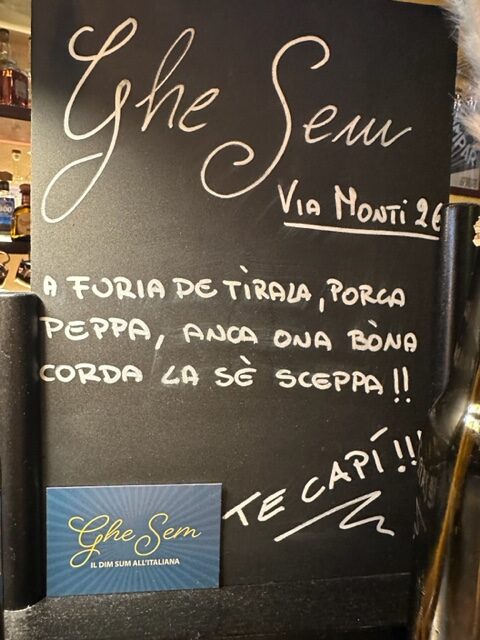 Ghe Sem
VIA MONTI 26
A FURIA DE TÌRALA, PORCA
PEPPA, ANCA ONA BÒNA
CORDA LA SÈ SCEPPA!!
TE CAPÍ!!!
Ghe Sem
IL DIM SUM ALL'ITALIANA